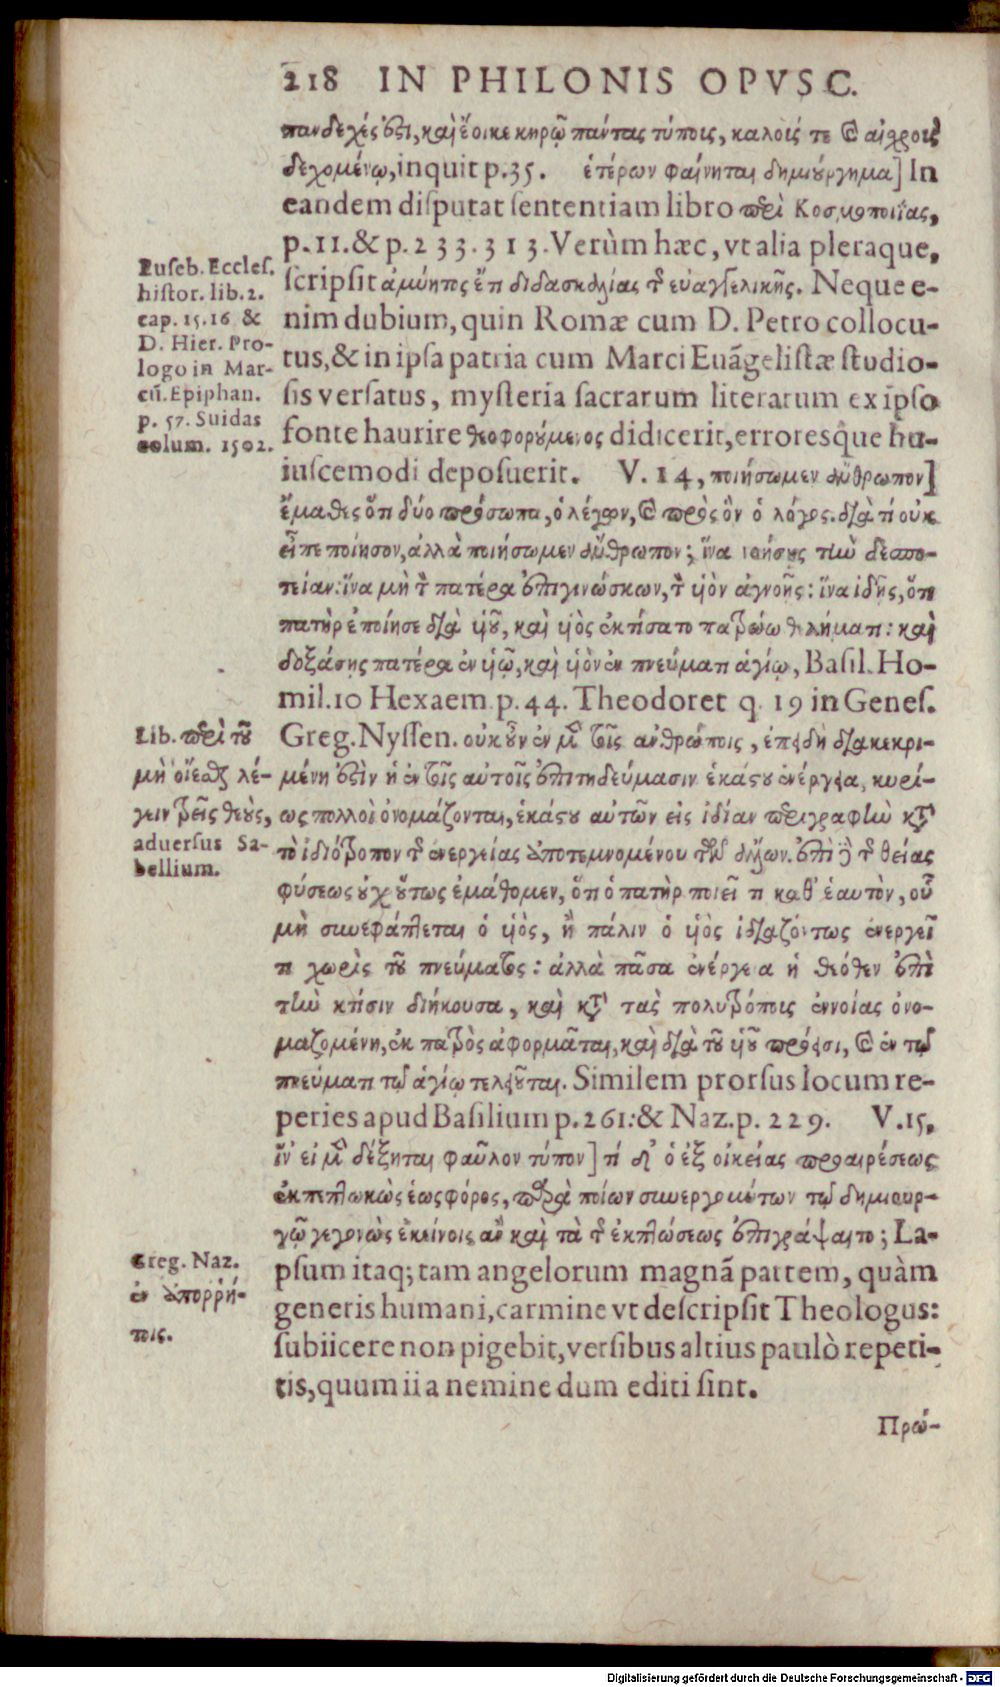 218 IN PHILONIS OPVSC.
πανδεχές ἐστι, καὶ ἔοικε κηρῷ πάντας τύποις, καλοῖς τε καὶ αἰχροῖς
δεχομένῳ, inquit p.35. ἑτέρων φαίνηται δημιούργημα] In
eandem disputat sententiam libro περὶ Κοσμοποιΐας,
p.11.& p.233.313. Verùm hæc, vt alia pleraque,
scripsit ἀμύητος ἔτι διδασκαλίας τῆς εὐαγγελικῆς. Neque e-
nim dubium, quin Romæ cum D. Petro collocu-
tus, & in ipsa patria cum Marci Euãgelistæ studio-
sis versatus, mysteria sacrarum literarum ex ipso
fonte haurire θεοφορούμενος didicerit, erroresq̂ue hu-
iuscemodi deposuerit. V.14, ποιήσωμεν ἄνθρωπον]
ἔμαθες ὅτι δύο πρόσωπα, ὁ λέγων, καὶ πρὸς ὃν ὁ λόγος. διὰ τί οὐκ
εἶπε ποίησον, ἀλλὰ ποιήσωμεν ἄνθρωπον; ἵνα νοήσῃς τὴν δεσπο-
τείαν: ἵνα μὴ τὸν πατέρα ἐπιγινώσκων, τὸν υἱὸν ἀγνοῇς: ἵνα ἰδῇς, ὅτι
πατὴρ ἐποίησε διὰ υἱοῦ, καὶ υἱὸς ἐκτήσατο πατρῴῳ θελήματι: καὶ
δοξάσῃς πατέρα ἐν υἱῷ, καὶ υἱὸν ἐν πνεύματι ἁγίῳ, Basil. Ho-
mil.10 Hexaem. p.44. Theodoret q. 19 in Genes.
Greg. Nyssen. οὐκοῦν ἐν μὲν τοῖς ἀνθρώποις, ἐπειδὴ διακεκρι-
μένη ἐστὶν ἡ ἐν τοῖς αὐτοῖς ἐπιτηδεύμασιν ἑκάστου ἐνέργεια, κυρί-
ως πολλοὶ ὀνομάζονται, ἑκάστου αὐτῶν εἰς ἰδίαν περιγραφὴν κατὰ
τὸ ἰδιότροπον τῆς ἐνεργείας ἀποτεμνομένου τῶν ἄλλων. ἐπὶ δὲ τῆς θείας
φύσεως οὐχ οὕτως ἐμάθομεν, ὅτι ὁ πατὴρ ποιεῖ τι καθ' ἑαυτὸν, οὗ
μὴ συνεφάπτεται ὁ υἱὸς, ἢ πάλιν ὁ υἱὸς ἰδιαζόντως ἐνεργεῖ
τι χωρὶς τοῦ πνεύματος: ἀλλὰ πᾶσα ἐνέργεια ἡ θεόθεν ἐπὶ
τὴν κτίσιν διήκουσα, καὶ κατὰ τὰς πολυτρόποις ἐννοίας ὀνο-
μαζομένη, ἐκ πατρὸς ἀφορμᾶται, καὶ διὰ τοῦ υἱοῦ πρόεισι, καὶ ἐν τῷ
πνεύματι τῷ ἁγίῳ τελειοῦται. Similem prorsus locum re-
peries apud Basilium p.261:& Naz.p. 229. V.15,
ἵν' εἰ μὲν δέξηται φαῦλον τύπον] τί δ' ὁ ἐξ οἰκείας προαιρέσεως
ἐκπεπτωκὼς ἑωσφόρος, παρὰ ποίων συνεργούντων τῷ δημιουρ-
γῷ γεγονὼς ἐκείνοις ἂν καὶ τὰ τῆς ἐκπτώσεως ἐπιγράψαιτο; La-
psum itaq; tam angelorum magnã partem, quàm
generis humani, carmine vt descripsit Theologus:
subiicere non pigebit, versibus altius paulò repeti-
tis, quum ii a nemine dum editi sint.
Πρώ-
Euseb. Eccles.
histor. lib. 2.
cap. 15.16 &
D. Hier. Pro-
logo in Mar-
cũ. Epiphan.
p. 57. Suidas
colum. 1502.
Lib. περὶ τοῦ
μὴ οἴεσθαι λέ-
γειν τρεῖς θεοὺς,
aduersus Sa-
bellium.
Greg. Naz.
ἐν ἀποῤῥή-
τοις.
Digitalisierung gefördert durch die Deutsche Forschungsgemeinschaft - DFG